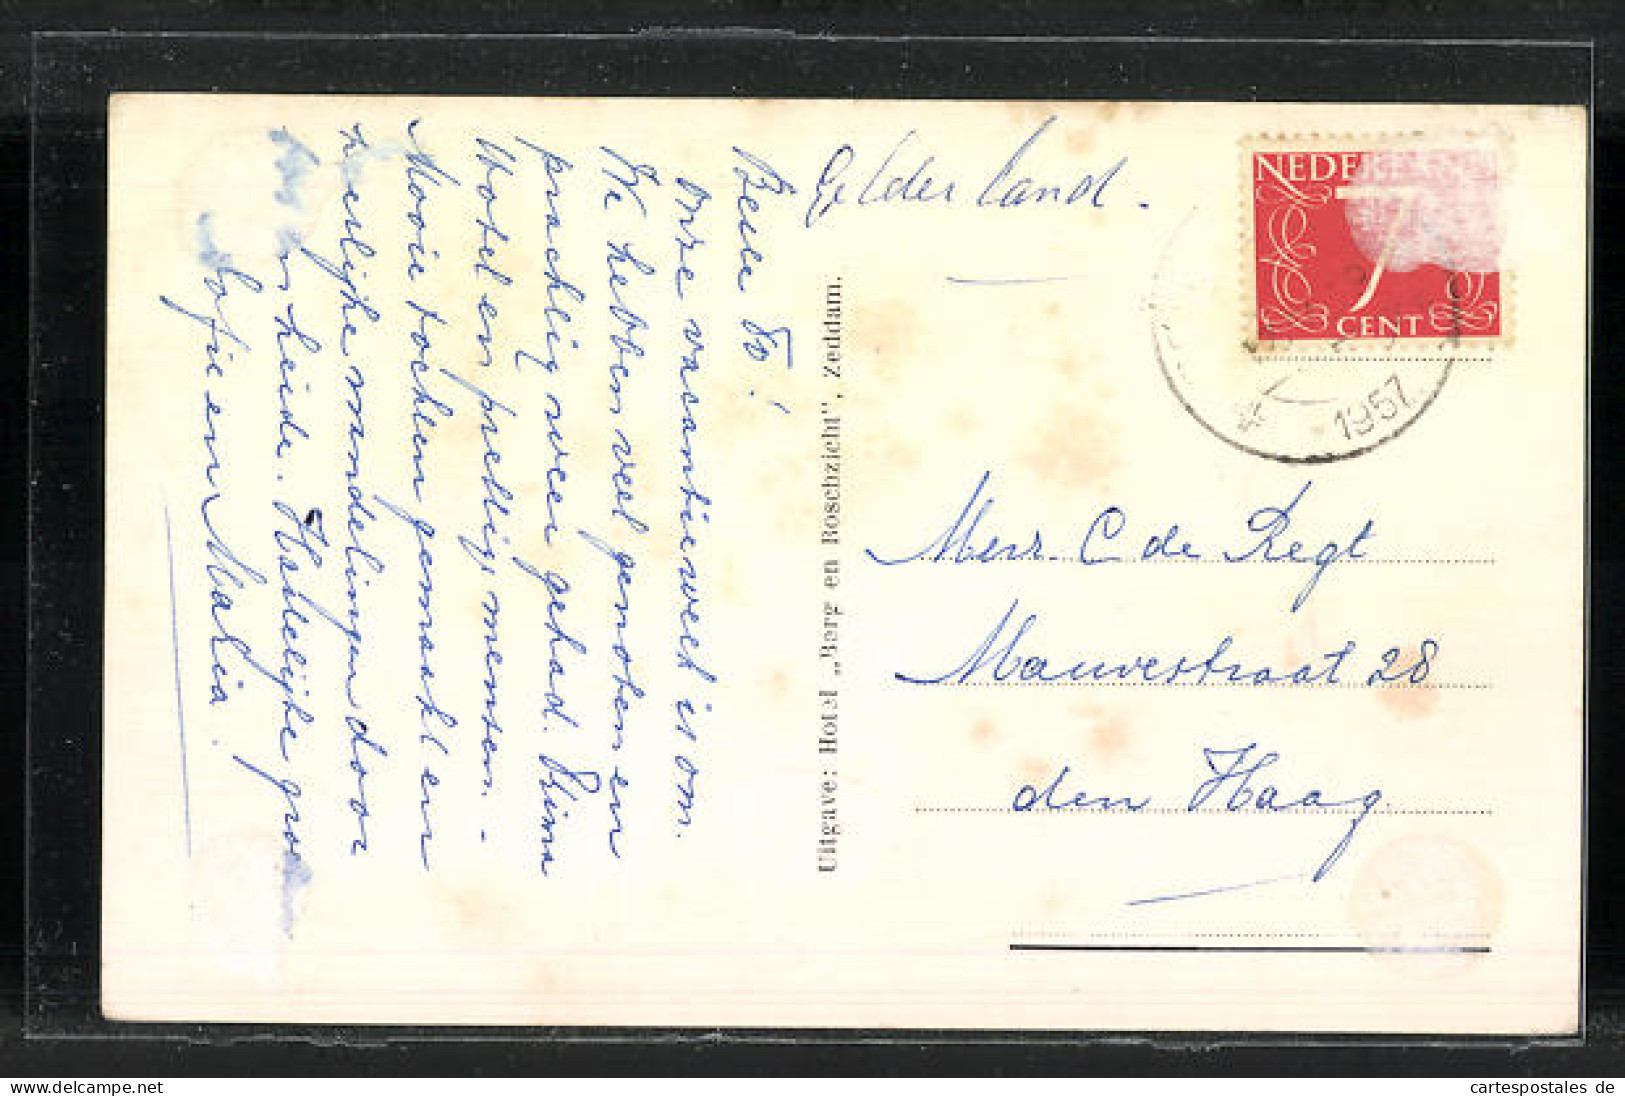 Gelderland.
Beste To!
Onze vacantieweek is om.
We hebben veel genoten en
prachtig weer gehad. Prima
Hotel en prettige mensen. -
Mooie tochten gemaakt en
heerlijke wandelingen door
en heide. Hartelijke groeten
Sofie en Maria.
Uitgave: Hotel „Berg en Boschzicht", Zeddam.
NEDERLAND
7
CENT
1957
Mevr. C de Regt
Mauvestraat 28
den Haag
delcampe.net
cartespostales de